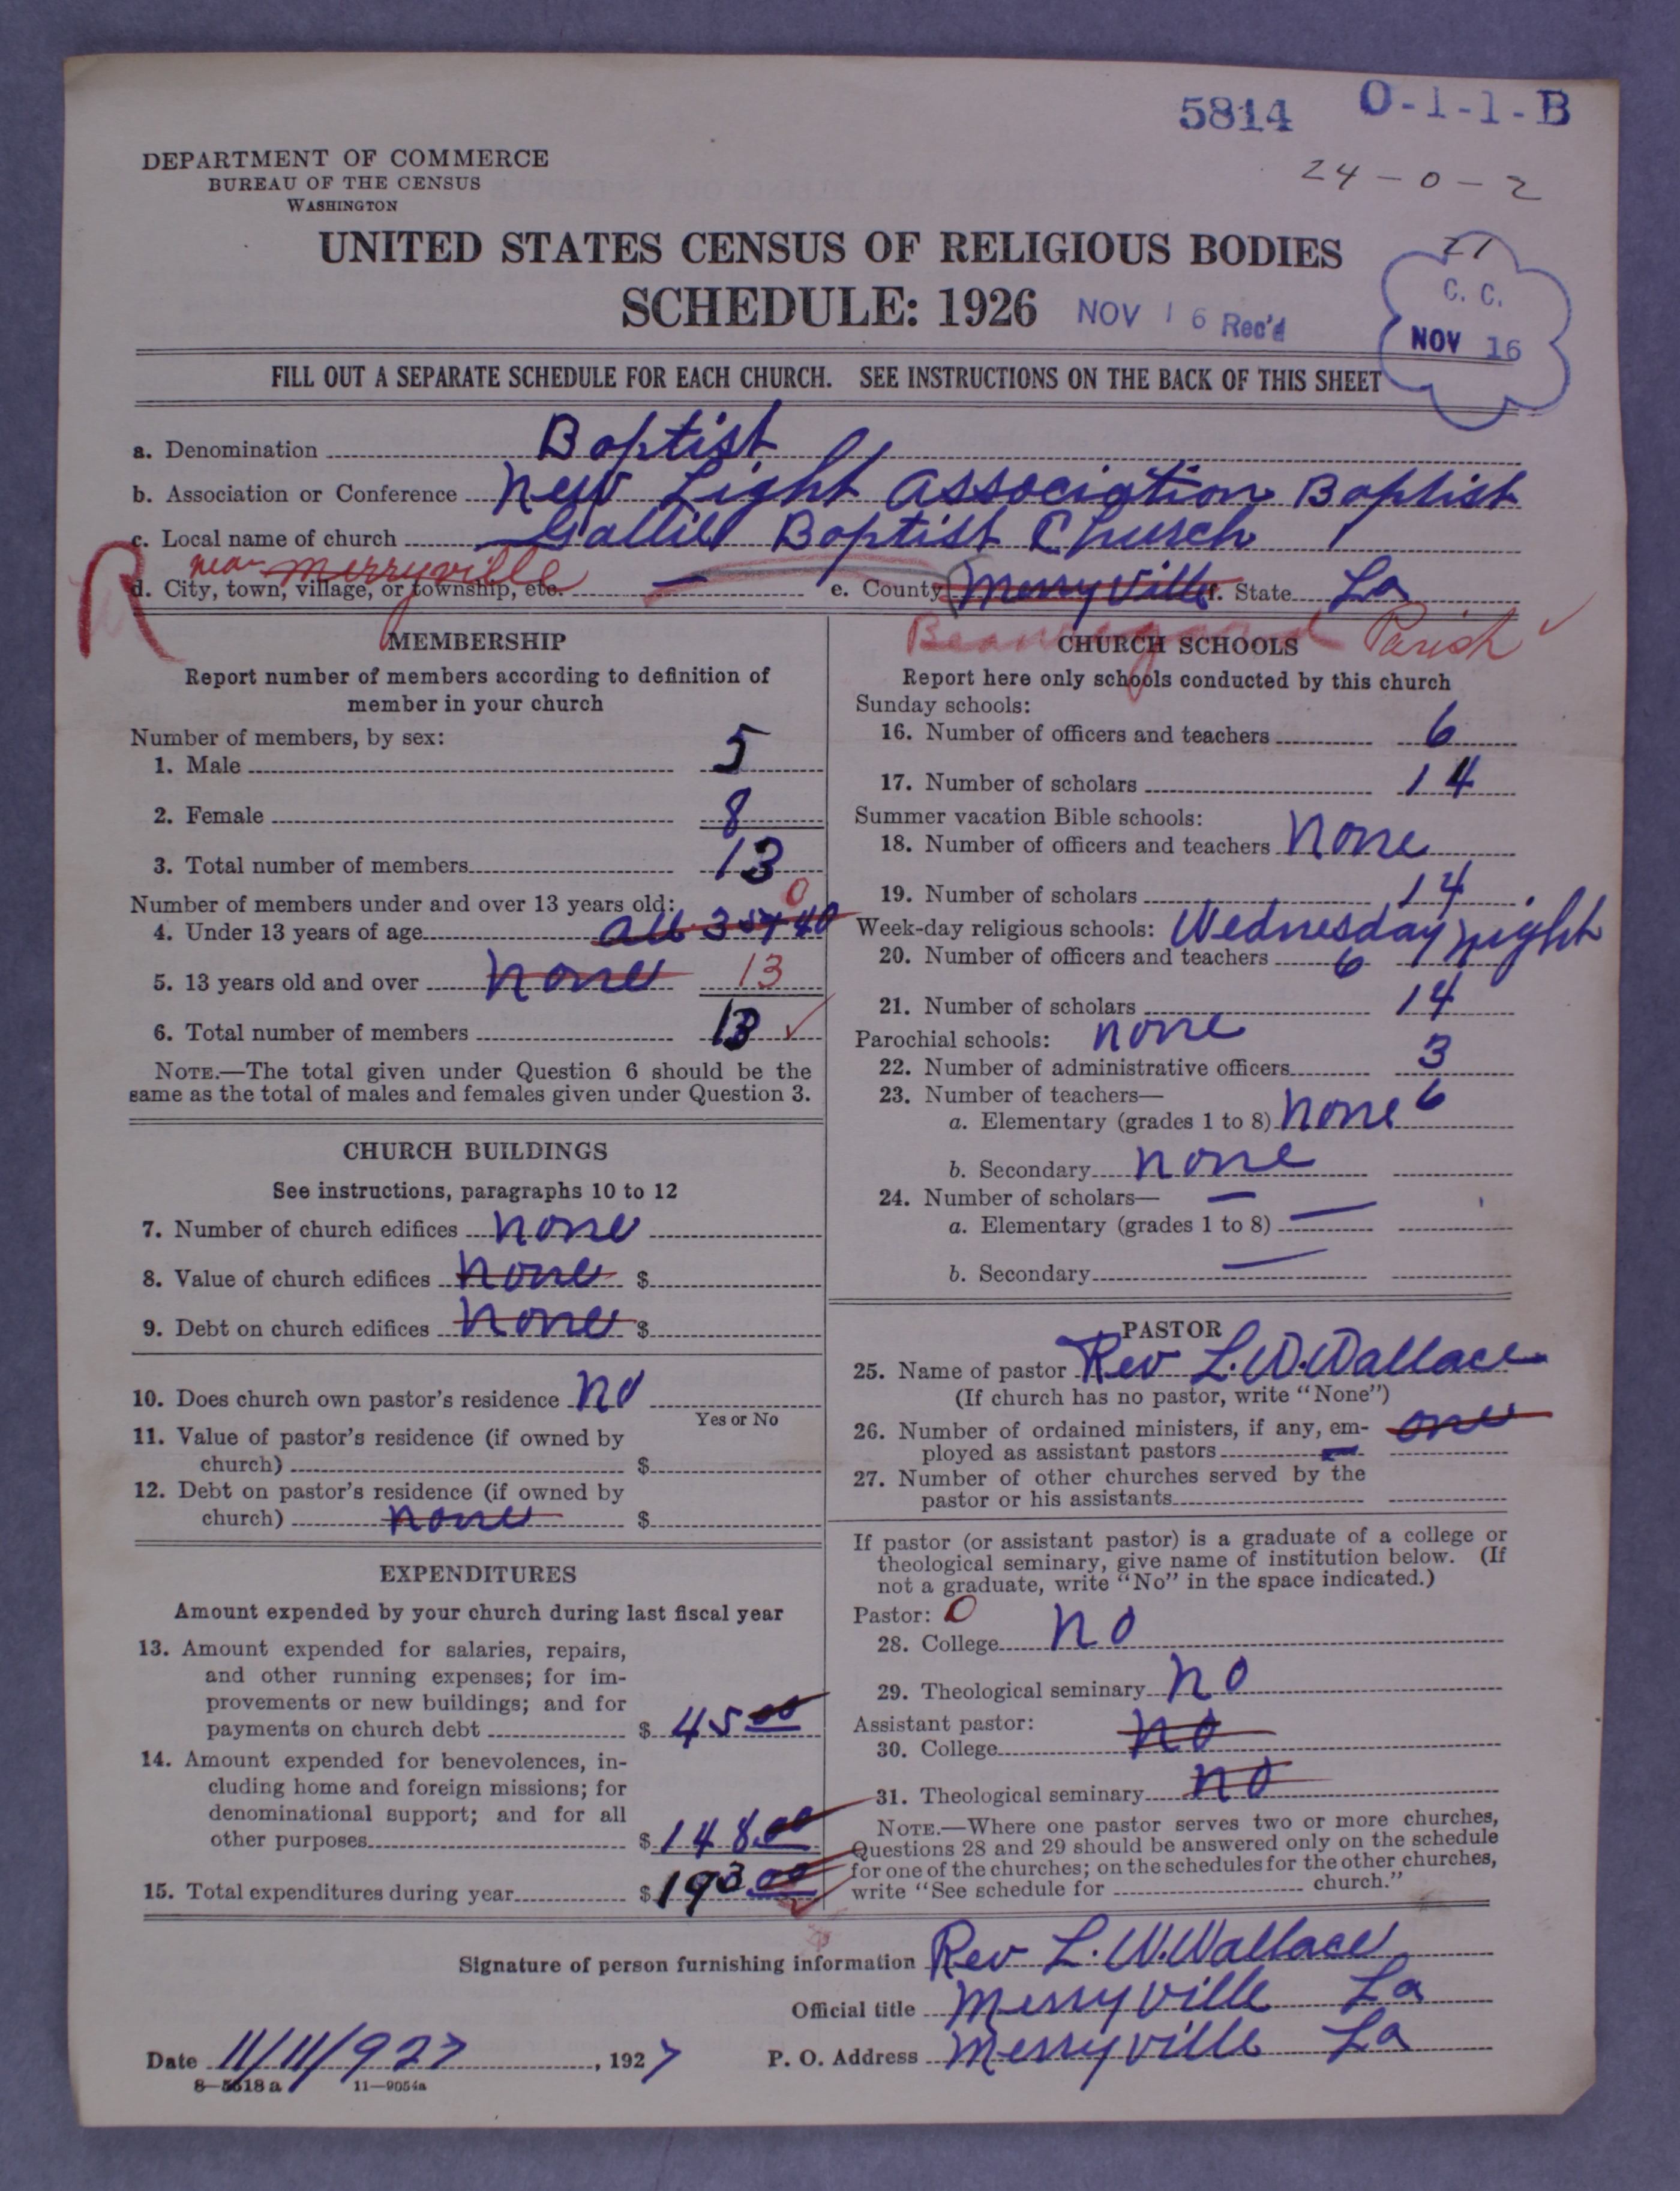 5814 O-1-1-B
24-0-2
DEPARTMENT OF COMMERCE
BUREAU OF THE CENSUS
WASHINGTON
UNITED STATES CENSUS OF RELIGIOUS BODIES
SCHEDULE: 1926 NOV 16 Rec'd
21
C. C.
NOV 16
FILL OUT A SEPARATE SCHEDULE FOR EACH CHURCH. SEE INSTRUCTIONS ON THE BACK OF THIS SHEET
a. Denomination Baptist
b. Association or Conference New Light Association Baptist
c. Local name of church Gallie Baptist Church
R near Merryville
d. City, town, village, or township, etc. — e. County Merryville f. State La
Beauregard Parish
MEMBERSHIP
Report number of members according to definition of
member in your church
Number of members, by sex:
1. Male 5
2. Female 8
3. Total number of members 13
Number of members under and over 13 years old: 0
4. Under 13 years of age all 35 + 40
5. 13 years old and over none 13
6. Total number of members 13 ✓
NOTE.—The total given under Question 6 should be the
same as the total of males and females given under Question 3.
CHURCH BUILDINGS
See instructions, paragraphs 10 to 12
7. Number of church edifices none
8. Value of church edifices none $
9. Debt on church edifices none $
10. Does church own pastor's residence no
Yes or No
11. Value of pastor's residence (if owned by
church) $
12. Debt on pastor's residence (if owned by
church) none $
EXPENDITURES
Amount expended by your church during last fiscal year
13. Amount expended for salaries, repairs,
and other running expenses; for im-
provements or new buildings; and for
payments on church debt $ 45 00
14. Amount expended for benevolences, in-
cluding home and foreign missions; for
denominational support; and for all
other purposes $ 148.00
15. Total expenditures during year $ 193 00
CHURCH SCHOOLS
Report here only schools conducted by this church
Sunday schools:
16. Number of officers and teachers 6
17. Number of scholars 14
Summer vacation Bible schools:
18. Number of officers and teachers None
19. Number of scholars 14
Week-day religious schools: Wednesday night
20. Number of officers and teachers 6
21. Number of scholars 14
Parochial schools: none
22. Number of administrative officers 3
23. Number of teachers— 6
a. Elementary (grades 1 to 8) none
b. Secondary none
24. Number of scholars— —
a. Elementary (grades 1 to 8) —
b. Secondary —
PASTOR
25. Name of pastor Rev L. W. Wallace
(If church has no pastor, write "None")
26. Number of ordained ministers, if any, em- one
ployed as assistant pastors
27. Number of other churches served by the
pastor or his assistants
If pastor (or assistant pastor) is a graduate of a college or
theological seminary, give name of institution below. (If
not a graduate, write "No" in the space indicated.)
Pastor: 0
28. College no
29. Theological seminary no
Assistant pastor:
30. College no
31. Theological seminary no
NOTE.—Where one pastor serves two or more churches,
Questions 28 and 29 should be answered only on the schedule
for one of the churches; on the schedules for the other churches,
write "See schedule for church."
Signature of person furnishing information Rev L. W. Wallace
Official title Merryville La
Date 11/11/927, 1927 P. O. Address Merryville La
8—5618 a 11—9054a